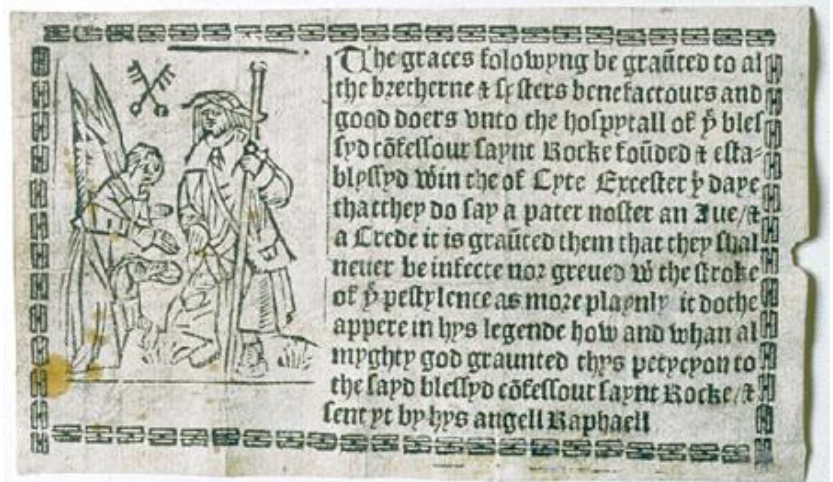 The graces folowyng be graũted to al
the bretherne & systers benefactours and
good doers vnto the hospytall of yͤ bles
syd cõfessour saynt Rocke foũded & esta-
blyssyd wͭin the of Cyte Excester yͤ daye
thatthey do say a pater noster an Aue/&
a Crede it is graũted them that they shal
neuer be infecte nor greued wͭ the stroke
of yͤ pestylence as more playnly it dothe
appere in hys legende how and whan al
myghty god graunted thys petycyon to
the sayd blessyd cõfessour saynt Rocke/&
sent yt by hys angell Raphaell